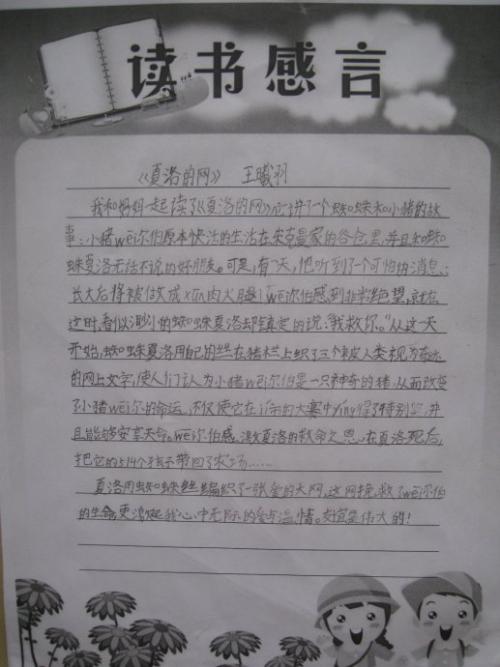 读书感言
《夏洛的网》 王曦羽
我和妈妈一起读了《夏洛的网》它讲了一个蜘蛛和小猪的故
事：小猪wēi尔伯原本快活的生活在朱克曼家的谷仓里，并且和蜘
蛛夏洛无话不说的好朋友。可是，有一天，他听到了一个可怕的消息：
长大后将被做成xūn肉火腿！wēi尔伯感到非常绝望，就在
这时，看似渺小的蜘蛛夏洛却镇定的说：“我救你。”从这一天
开始，蜘蛛夏洛用自己的丝在猪栏上织了三个被人类视为奇迹
的网上文字，使人们认为小猪wēi尔伯是一只神奇的猪，从而改变
了小猪wēi尔伯的命运。不仅使它在 的大赛中yíng得了特别 ，并
且能够安享天命。wēi尔伯感激夏洛的救命之恩，在夏洛死后，
把它的514个孩子带回了农场……
夏洛用蜘蛛丝编织了一张爱的大网，这网挽救了wēi尔伯
的生命，更激起我心中无际的爱与温情。友谊是伟大的！